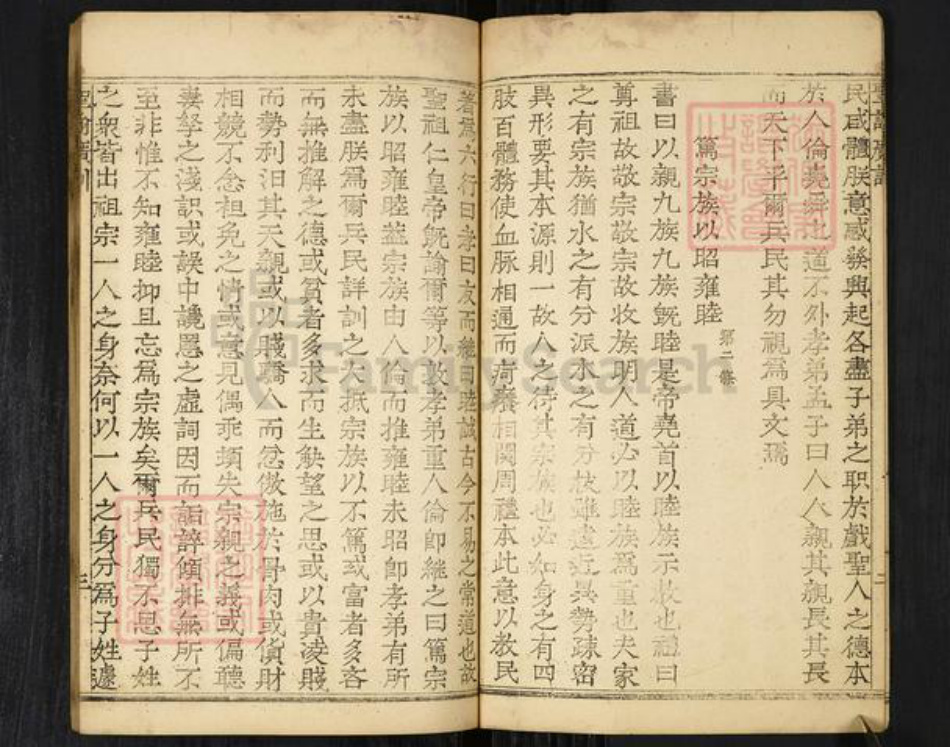 民咸體朕意感發興起各盡子弟之职於戲聖人之德本
於人倫堯舜之道不外孝弟孟子曰人人親其親長其長
而天下平爾兵民其勿視為具文焉
篤宗族以昭雍睦 第二條
書曰以親九族九族旣睦是帝堯首以睦族示教也禮曰
尊祖故敬宗敬宗故收族明人道必以睦族爲重也夫家
之有宗族猶水之有分派木之有分枝雖遠近異勢疎密
異形要其本源則一故人之待其宗族也必如身之有四
肢百體務使血脉相通而疴癢相関周禮本此意以教民
著爲六行曰孝曰友而繼曰睦誠古今不易之常道也故
聖祖仁皇帝旣諭爾等以敦孝弟重人倫卽繼之曰篤宗
族以昭雍睦葢宗族由人倫而推雍睦未昭卽孝弟有所
未盡朕爲爾兵民詳訓之大抵宗族以不篤或富者多吝
而無推解之德或貧者多求而生觖望之思或以貴凌賤
而勢利汨其天親或以賤驕人而忿傲施於骨肉或貨財
相競不念袒免之情或意見偶乖頓失宗親之義或偏聽
妻孥之淺識或誤中讒慝之虛詞因而詬誶傾排無所不
至非惟不知雍睦抑且忘爲宗族矣爾兵民獨不思子姓
之衆皆出祖宗一人之身奈何以一人之身分爲子姓遽
聖諭廣訓
三
FamilySearch